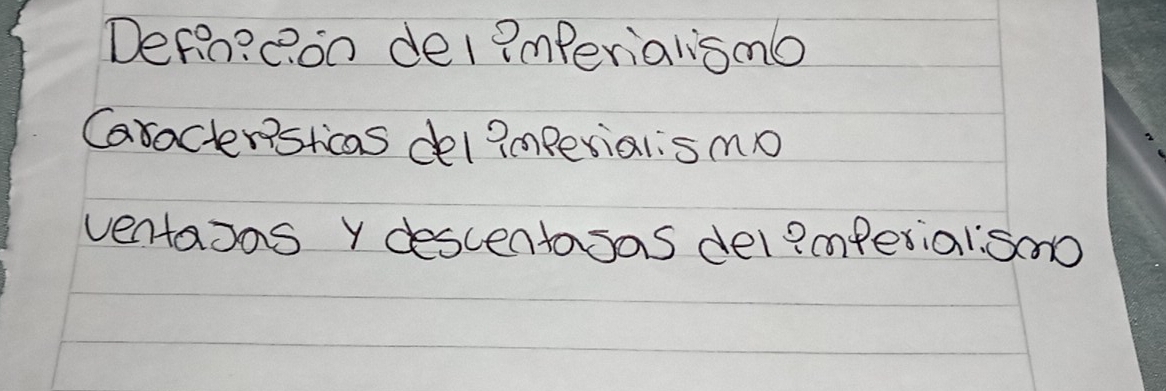 Definición del imperialismo
Características del imperialismo
ventajas y desventajas del imperialismo